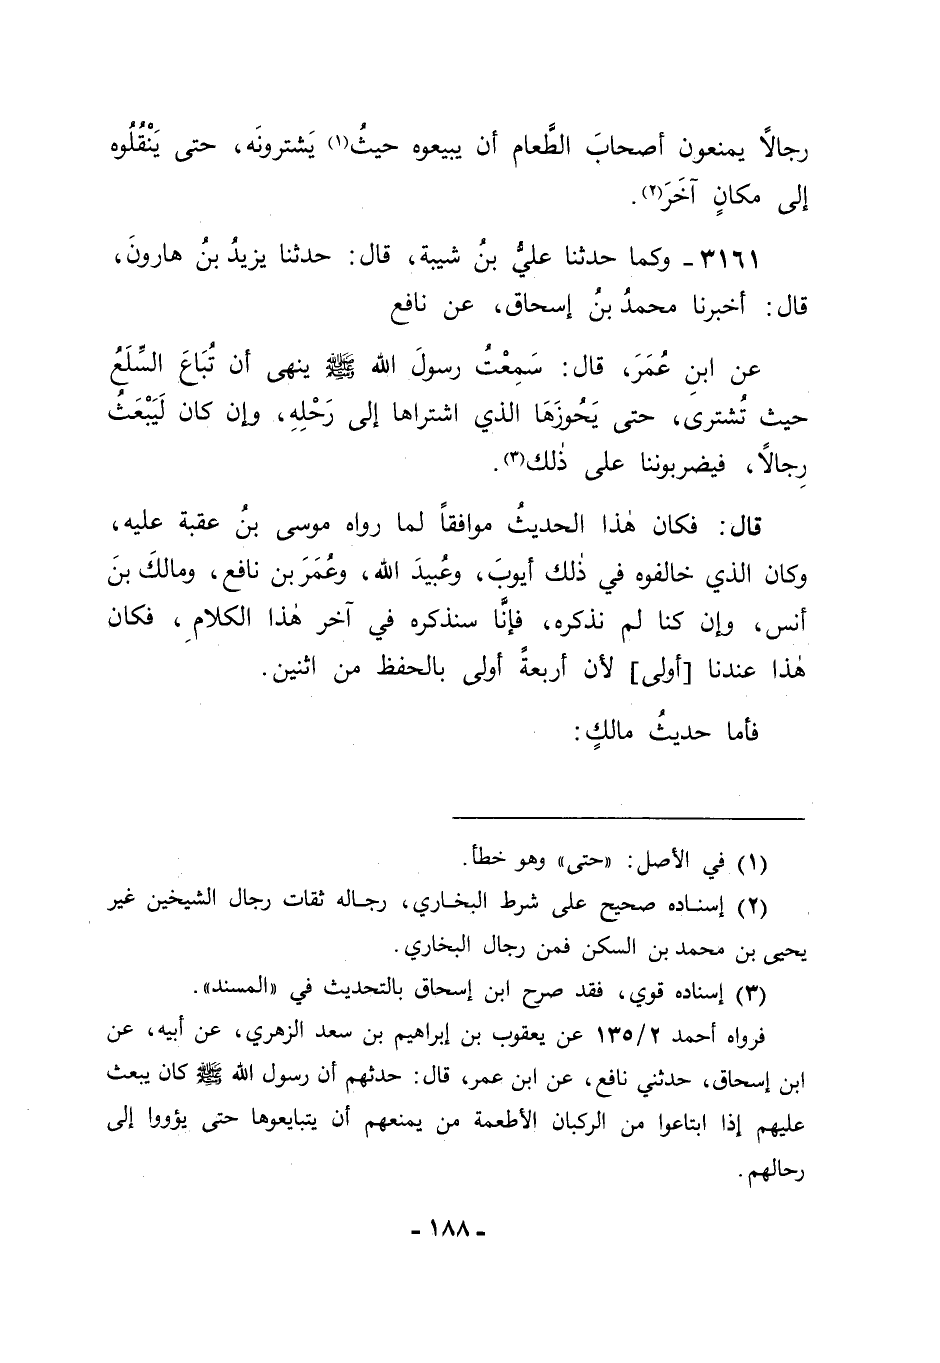 رجالاً يمنعون أصحابَ الطَّعام أن يبيعوه حيثُ(١) يَشترونَه، حتى يَنْقُلُوه
إلى مكانٍ آخَرَ(٢).
٣١٦١ - وكما حدثنا عليُّ بنُ شيبة، قال: حدثنا يزيدُ بنُ هارونَ،
قال: أخبرنا محمدُ بنُ إسحاق، عن نافع
عن ابنِ عُمَرَ، قال: سَمِعْتُ رسولَ الله ﷺ ينهى أن تُبَاعَ السِّلَعُ
حيث تُشترى، حتى يَحُوزَهَا الذي اشتراها إلى رَحْلِهِ، وإن كان لَيَبْعَثُ
رِجالاً، فيضربوننا على ذٰلك(٣).
قال: فكان هٰذا الحديثُ موافقاً لما رواه موسى بنُ عقبة عليه،
وكان الذي خالفوه في ذٰلك أيوبَ، وعُبيدَ الله، وعُمَرَ بن نافع، ومالكَ بنَ
أنس، وإن كنا لم نذكره، فإنَّا سنذكره في آخر هٰذا الكلامِ، فكان
هٰذا عندنا [أولى] لأن أربعةً أولى بالحفظ من اثنين.
فأما حديثُ مالكٍ:
(١) في الأصل: «حتى» وهو خطأ.
(٢) إسناده صحيح على شرط البخاري، رجاله ثقات رجال الشيخين غير
يحيى بن محمد بن السكن فمن رجال البخاري.
(٣) إسناده قوي، فقد صرح ابن إسحاق بالتحديث في «المسند».
فرواه أحمد ١٣٥/٢ عن يعقوب بن إبراهيم بن سعد الزهري، عن أبيه، عن
ابن إسحاق، حدثني نافع، عن ابن عمر، قال: حدثهم أن رسول الله ﷺ كان يبعث
عليهم إذا ابتاعوا من الركبان الأطعمة من يمنعهم أن يتبايعوها حتى يؤووا إلى
رحالهم.
- ١٨٨ -